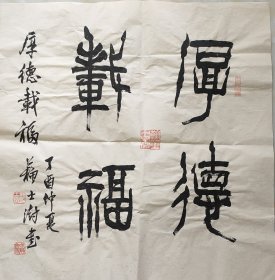 厚德
載福
厚德載福
丁酉仲夏
蘇士澍書